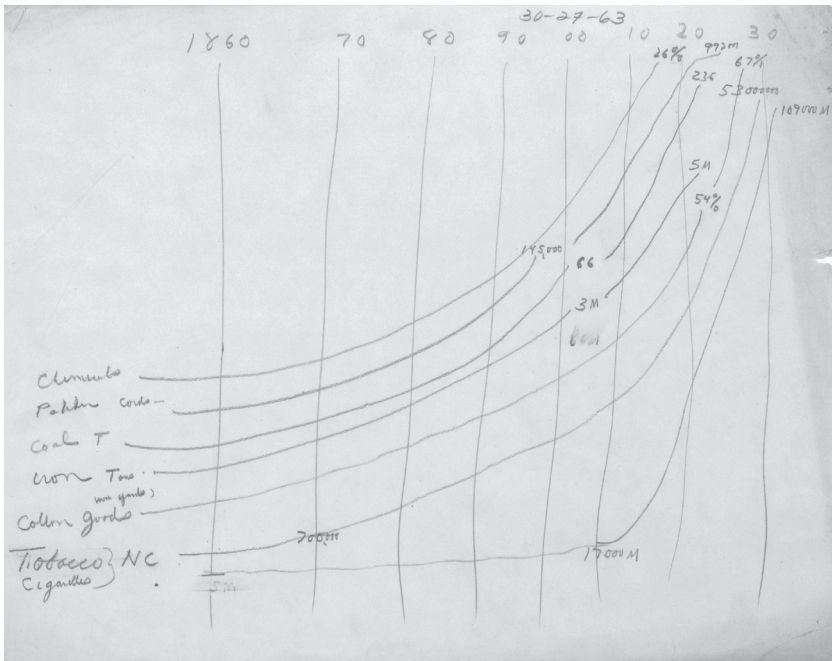 30-27-63
1860 70 80 90 00 10 20 30
26% 992m 67%
236
5300000
169000M
5M
54%
145,000
66
3M
60M
Chemicals
cords
Coal T
Iron Tons
Cotton goods
Tobacco } NC
Cigarettes
700,000
17000M
5M